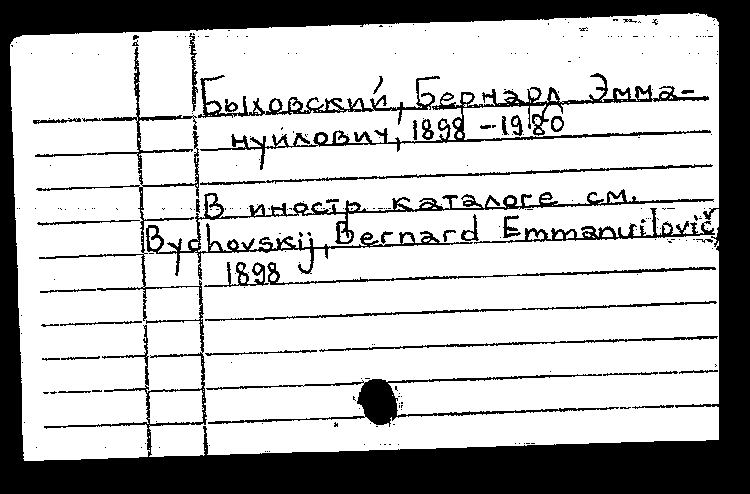 Быховский, Бернард Эмма-
нуилович, 1898-1980
В иностр каталоге см.
Bychovskij, Bernard Emmanuilovič
1898